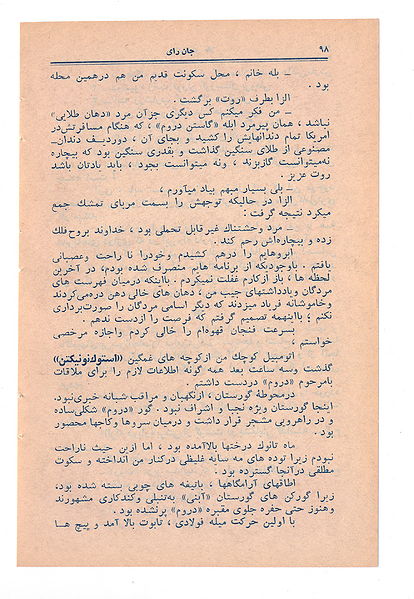 ۹۸
جان رای
ــ بله خانم ، محل سکونت قدیم من هم درهمین محله
بود .
الزا بطرف «روت» برگشت .
ــ من فکر میکنم کس دیگری جز آن مرد «دهان طلایی»
نباشد ، همان پیرمرد ابله «گاستن دروم» ، که هنگام مسافرتش در
آمریکا تمام دندانهایش را کشید و بجای آن ، دوردیف دندان‌ــ
مصنوعی از طلای سنگین گذاشت و بقدری سنگین بود که بیچاره
نه‌میتوانست گازبزند ، ونه میتوانست بجود ، باید یادتان باشد
روت عزیز .
ــ بلی بسیار مبهم بیاد میآورم ،
الزا در حالیکه توجهش را بسمت مربای تمشك جمع
میکرد نتیجه گرفت :
ــ مرد وحشتناك غیر قابل تحملی بود ، خداوند بروح فلك
زده و بیچاره‌اش رحم کند .
ابروهایم را درهم کشیدم وخودرا نا راحت وعصبانی
یافتم . باوجودیکه از برنامه هایم منصرف شده بودم، در آخرین
لحظه ها ، باز از کارم غفلت نمیکردم . بااینکه درمیان فهرست های
مردگان ویادداشتهای جیب من ، دهان های خالی دهن دره‌میکردند
وخاموشانه فریاد میزدند که دیگر اسامی مردگان را صورت‌برداری
نکنم ؛ بااینهمه تصمیم گرفتم که فرصت را ازدست ندهم .
بسرعت فنجان قهوه‌ام را خالی کردم واجازه مرخصی
خواستم ،
اتومبیل کوچك من از کوچه های غمگین ((استوك‌نوئیگتن))
گذشت وسه ساعت بعد همه گونه اطلاعات لازم را برای ملاقات
بامرحوم «دروم» دردست داشتم .
درمحوطهٔ گورستان ، از نگهبان و مراقب شبانه خبری‌نبود.
اینجا گورستان ویژه نجبا و اشراف نبود . گور «دروم» شکلی‌ساده
و در راهرویی مشجر قرار داشت و درمیان سروها وکاجها محصور
بود .
ماه تانوك درختها بالاآمده بود ، اما ازین حیث ناراحت
نبودم زیرا توده های مه سایه غلیظی درکنار من انداخته و سکوت
مطلقی درآنجا گسترده بود .
اطاقهای آرامگاهها ، باتیغه های چوبی بسته شده بود،
زیرا گورکن های گورستان «آبنی» به‌تنبلی وکندکاری مشهورند
وهنوز حتی حفره جلوی مقبره «دروم» پرنشده بود .
با اولین حرکت میله فولادی ، تابوت بالا آمد و پیچ هــا